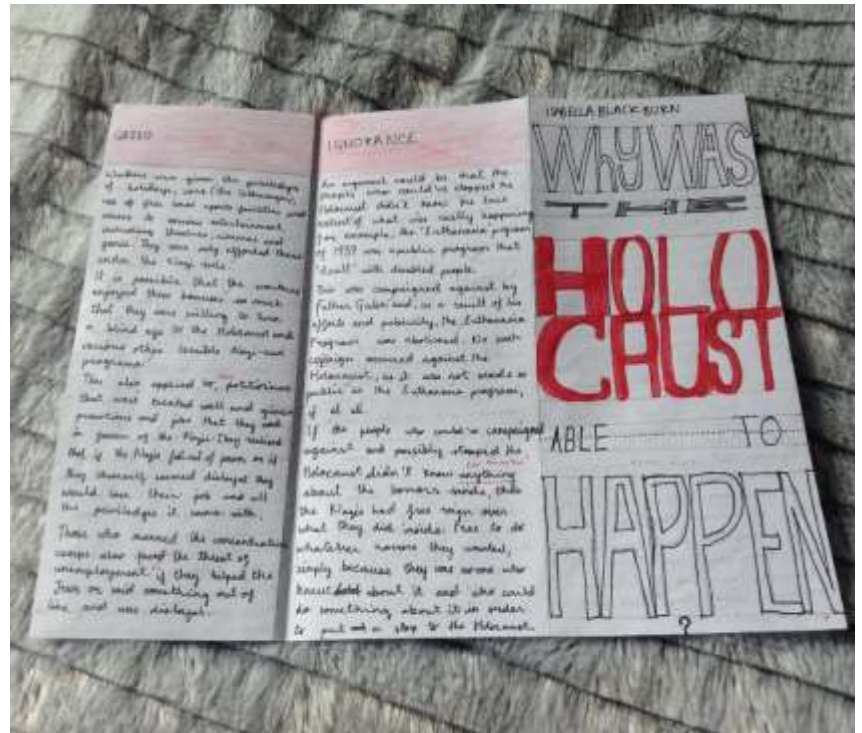 GREED
Workers were given the priviledges
of holidays, some (the Volkswagen),
use of free and sports facilities and
access to various entertainment
including theatres, cinemas and
games. They were only afforded these
under the Nazi rule.
It is possible that the workers
enjoyed these bonuses so much
that they were willing to turn
a blind eye to the Holocaust and
various other terrible Nazi-run
programs.
This also applied to
that were treated well and given
promotions and jobs that they were
in favour of the Nazis. They realised
that if the Nazis fell out of power or if
they themselves seemed disloyal they
would lose their job and all
the priviledges it came with.
Those who manned the concentration
camps also faced the threat of
unemployment if they helped the
Jews or said something out of
line and was disloyal.
IGNORANCE
An argument could be that the
people who could've stopped the
Holocaust didn't know the true
extent of what was really happening
for example, the 'Euthanasia program
of 1939 was a public program that
"dealt" with disabled people.
This was campaigned against by
Father Galen and, as a result of his
efforts and publicity, the Euthanasia
Program was abolished. No such
campaign occurred against the
Holocaust, as it was not made as
public as the Euthanasia program,
if at all.
If the people who could've campaigned
against and possibly stopped the
Holocaust didn't know anything
about the horrors inside, then
the Nazis had free reign over
what they did inside. Free to do
whatever horrors they wanted,
simply because they was noone who
knew about it and who could
do something about it in order
to put a stop to the Holocaust.
ISABELLA BLACKBURN
WhY WAS
THE
HOLO
CAUST
ABLE TO
HAPPEN
?